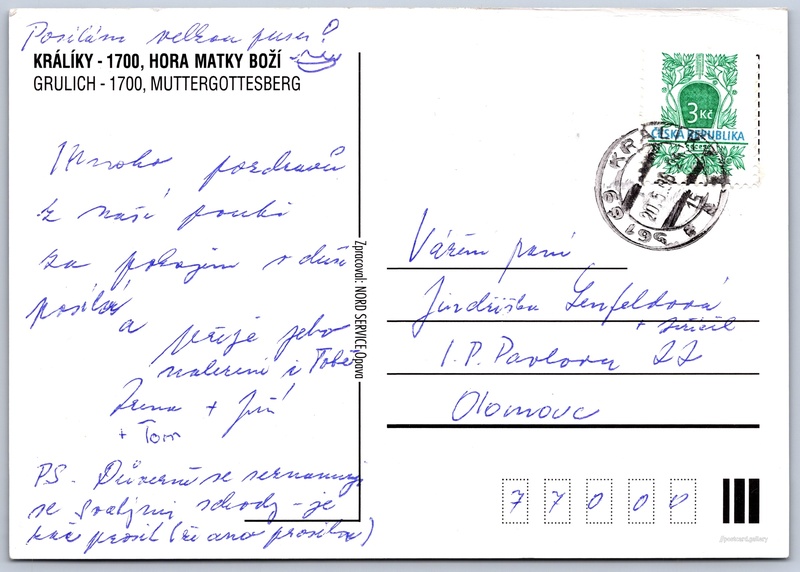 Posílám velkou pusu!
KRÁLÍKY - 1700, HORA MATKY BOŽÍ
GRULICH - 1700, MUTTERGOTTESBERG
3 Kč
ČESKÁ REPUBLIKA
KRÁLÍKY
561 69
20.5.
15
Mnoho pozdravů
z naší pouti
za pokojem v duši
posílá
a přeje jeho
nalezení i Tobě
Irena + Jiří
+ Tom
PS. Důvěrně se seznamuji
se svatými schody - je
(že ano prosila)
Zpracoval: NORD SERVICE, Opava
Vážená paní
Jindřiška Lenfeldová
I. P. Pavlova 22
Olomouc
7 7 0 0 0
//postcard.gallery